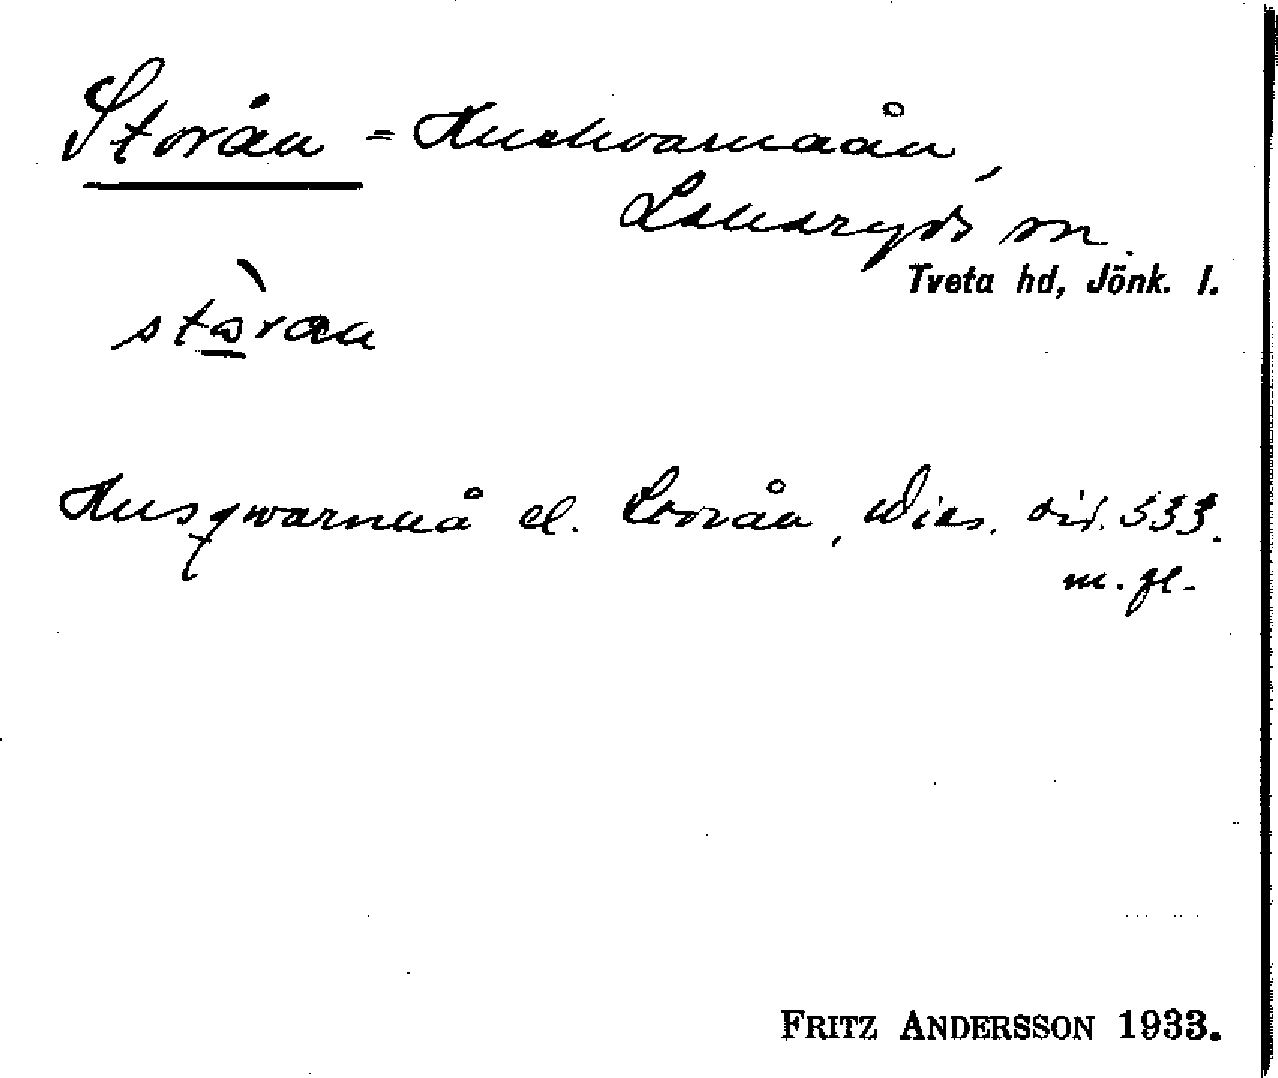 Storån = Huskvarnaån,
Lekeryds sn.
Tveta hd, Jönk. l.
stòran
Husqwarnaå el. Storån, Wies. sid. 533.
m. fl.
FRITZ ANDERSSON 1933.